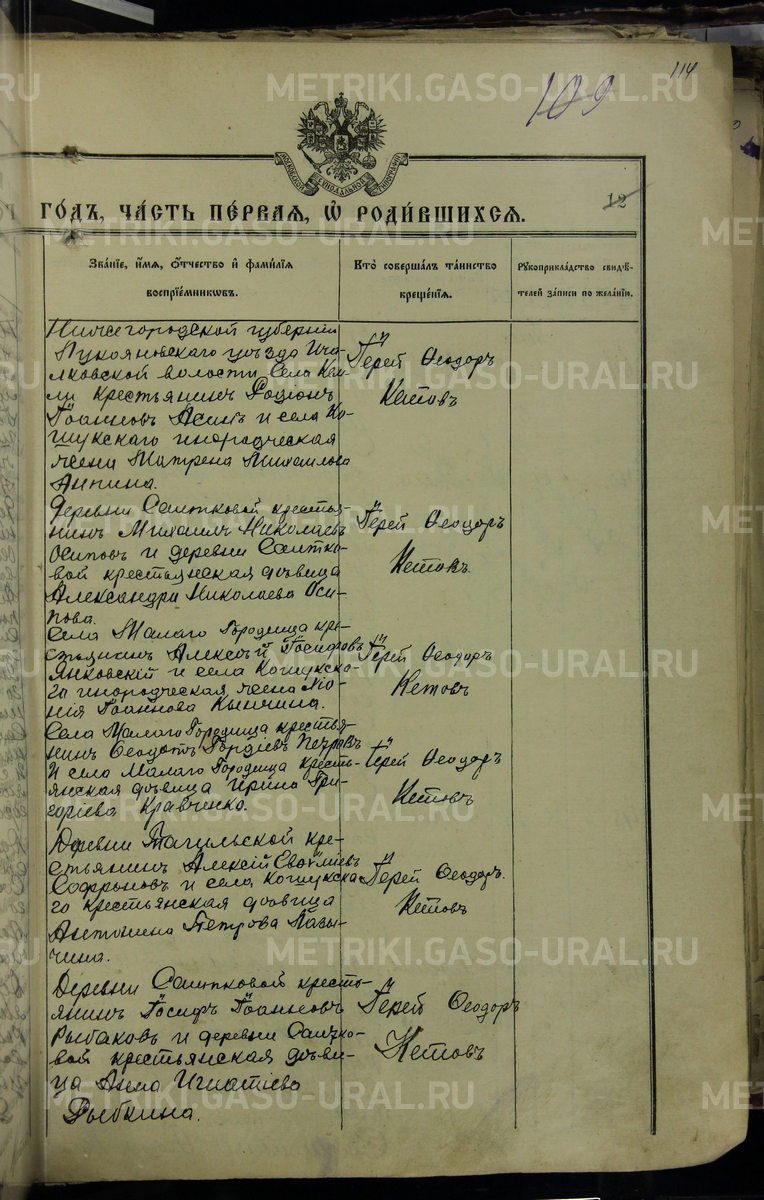 114
109
МОСКОВСКОЙ СѴНОДАЛЬНОЙ ТИПОГРАФІИ
12
ГО́ДЪ, ЧА́СТЬ ПЕ́РВАЯ, Ѡ҆ РОДИ́ВШИХСЯ.
Зва́нїе, и҆́мѧ, ѻ҆́тчество и҆ фами́лїѧ воспрїе́мникѡвъ.
Кто̀ соверша́лъ та́инство креще́нїѧ.
Рꙋкоприкла́дство свидѣ́телей за́писи по жела́нїю.
Нижегородской губерніи
Лукояновскаго уѣзда
волости Села
крестьянинъ Родіонъ
Іоанновъ и села Ко-
шукскаго инородческая
жена Матрена Михаилова
Анпина.
Іерей Ѳеодоръ
Кетовъ
Деревни Саитковой крестья-
нинъ Михаилъ Николаевъ
Осиповъ и деревни Саитко-
вой крестьянская дѣвица
Александра Николаева Оси-
пова.
Іерей Ѳеодоръ
Кетовъ.
Села Малаго Городища кре-
стьянинъ Алексѣй Іосифовъ
Янковскій и села Кошукско-
го инородческая жена
Іоаннова
Іерей Ѳеодоръ
Кетовъ
Села Малаго Городища крестья-
нинъ Ѳеодотъ Гордіевъ Петровъ
и села Малаго Городища кресть-
янская дѣвица Ирина Гри-
горіева Кравченко.
Іерей Ѳеодоръ
Кетовъ
Деревни Тагильской кре-
стьянинъ Алексій
Софроновъ и села Кошукска-
го крестьянская дѣвица
Антонина Петрова Лазы-
чина.
Іерей Ѳеодоръ.
Кетовъ
Деревни Саитковой кресть-
янинъ Іосифъ Іоанновъ
Рыбаковъ и деревни Саитко-
вой крестьянская дѣви-
ца Анна Игнатіева
Рыбкина.
Іерей Ѳеодоръ
Кетовъ
METRIKI.GASO-URAL.RU